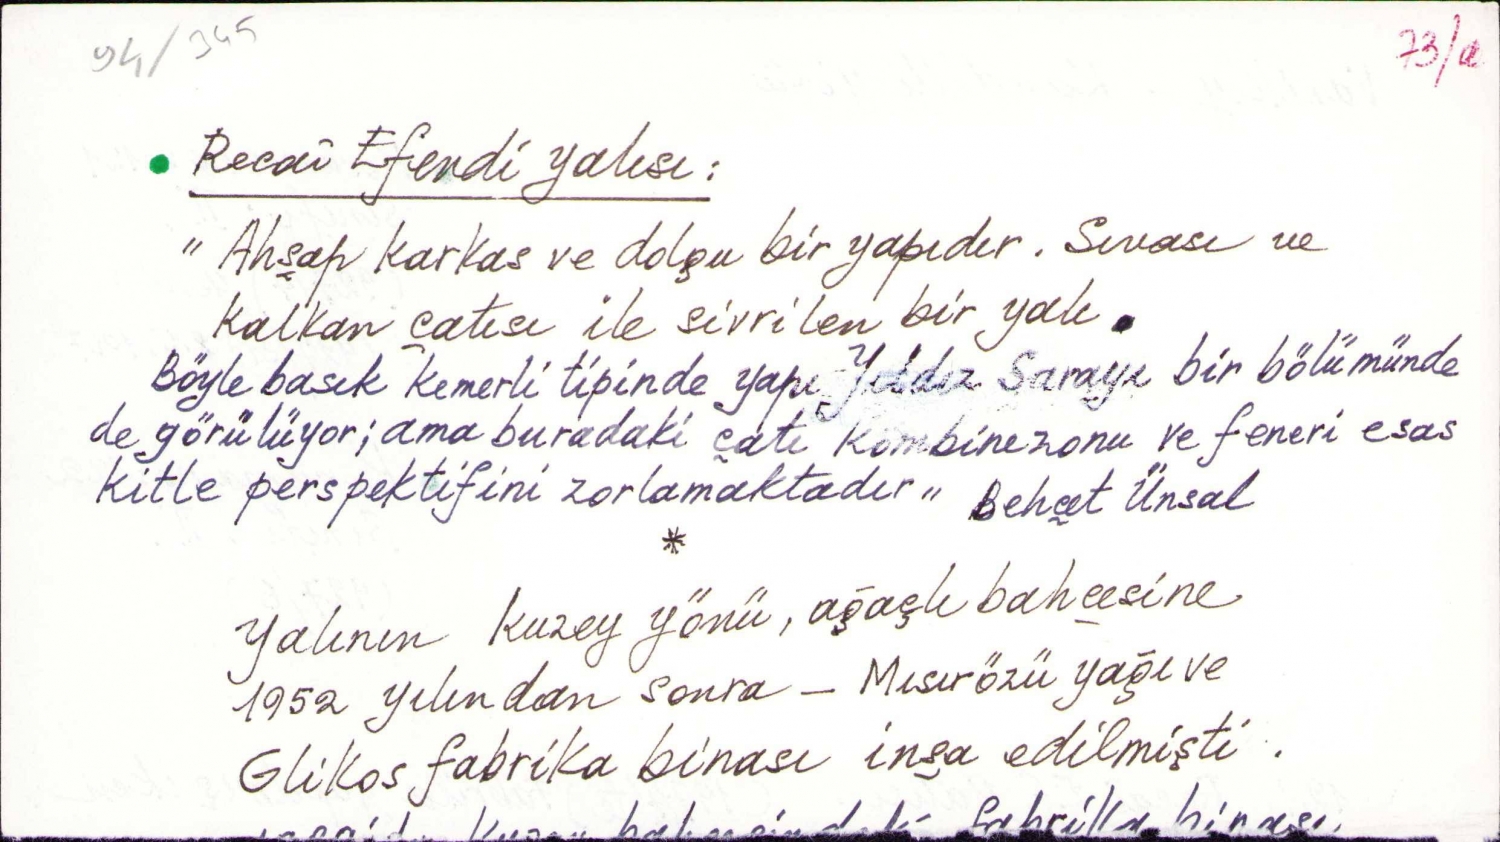 94/345
73/a
• Recaî Efendi yalısı:
" Ahşap karkas ve dolgu bir yapıdır. Sıvası ve
kalkan çatısı ile sivrilen bir yalı.
Böyle basık kemerli tipinde yapı Yıldız Sarayı bir bölümünde
de görülüyor; ama buradaki çatı kombinezonu ve feneri esas
kitle perspektifini zorlamaktadır" Behçet Ünsal
*
Yalının kuzey yönü, ağaçlı bahçesine
1952 yılından sonra – Mısırözü yağı ve
Glikos fabrika binası inşa edilmişti.
kuzey bahçesindeki fabrika binası